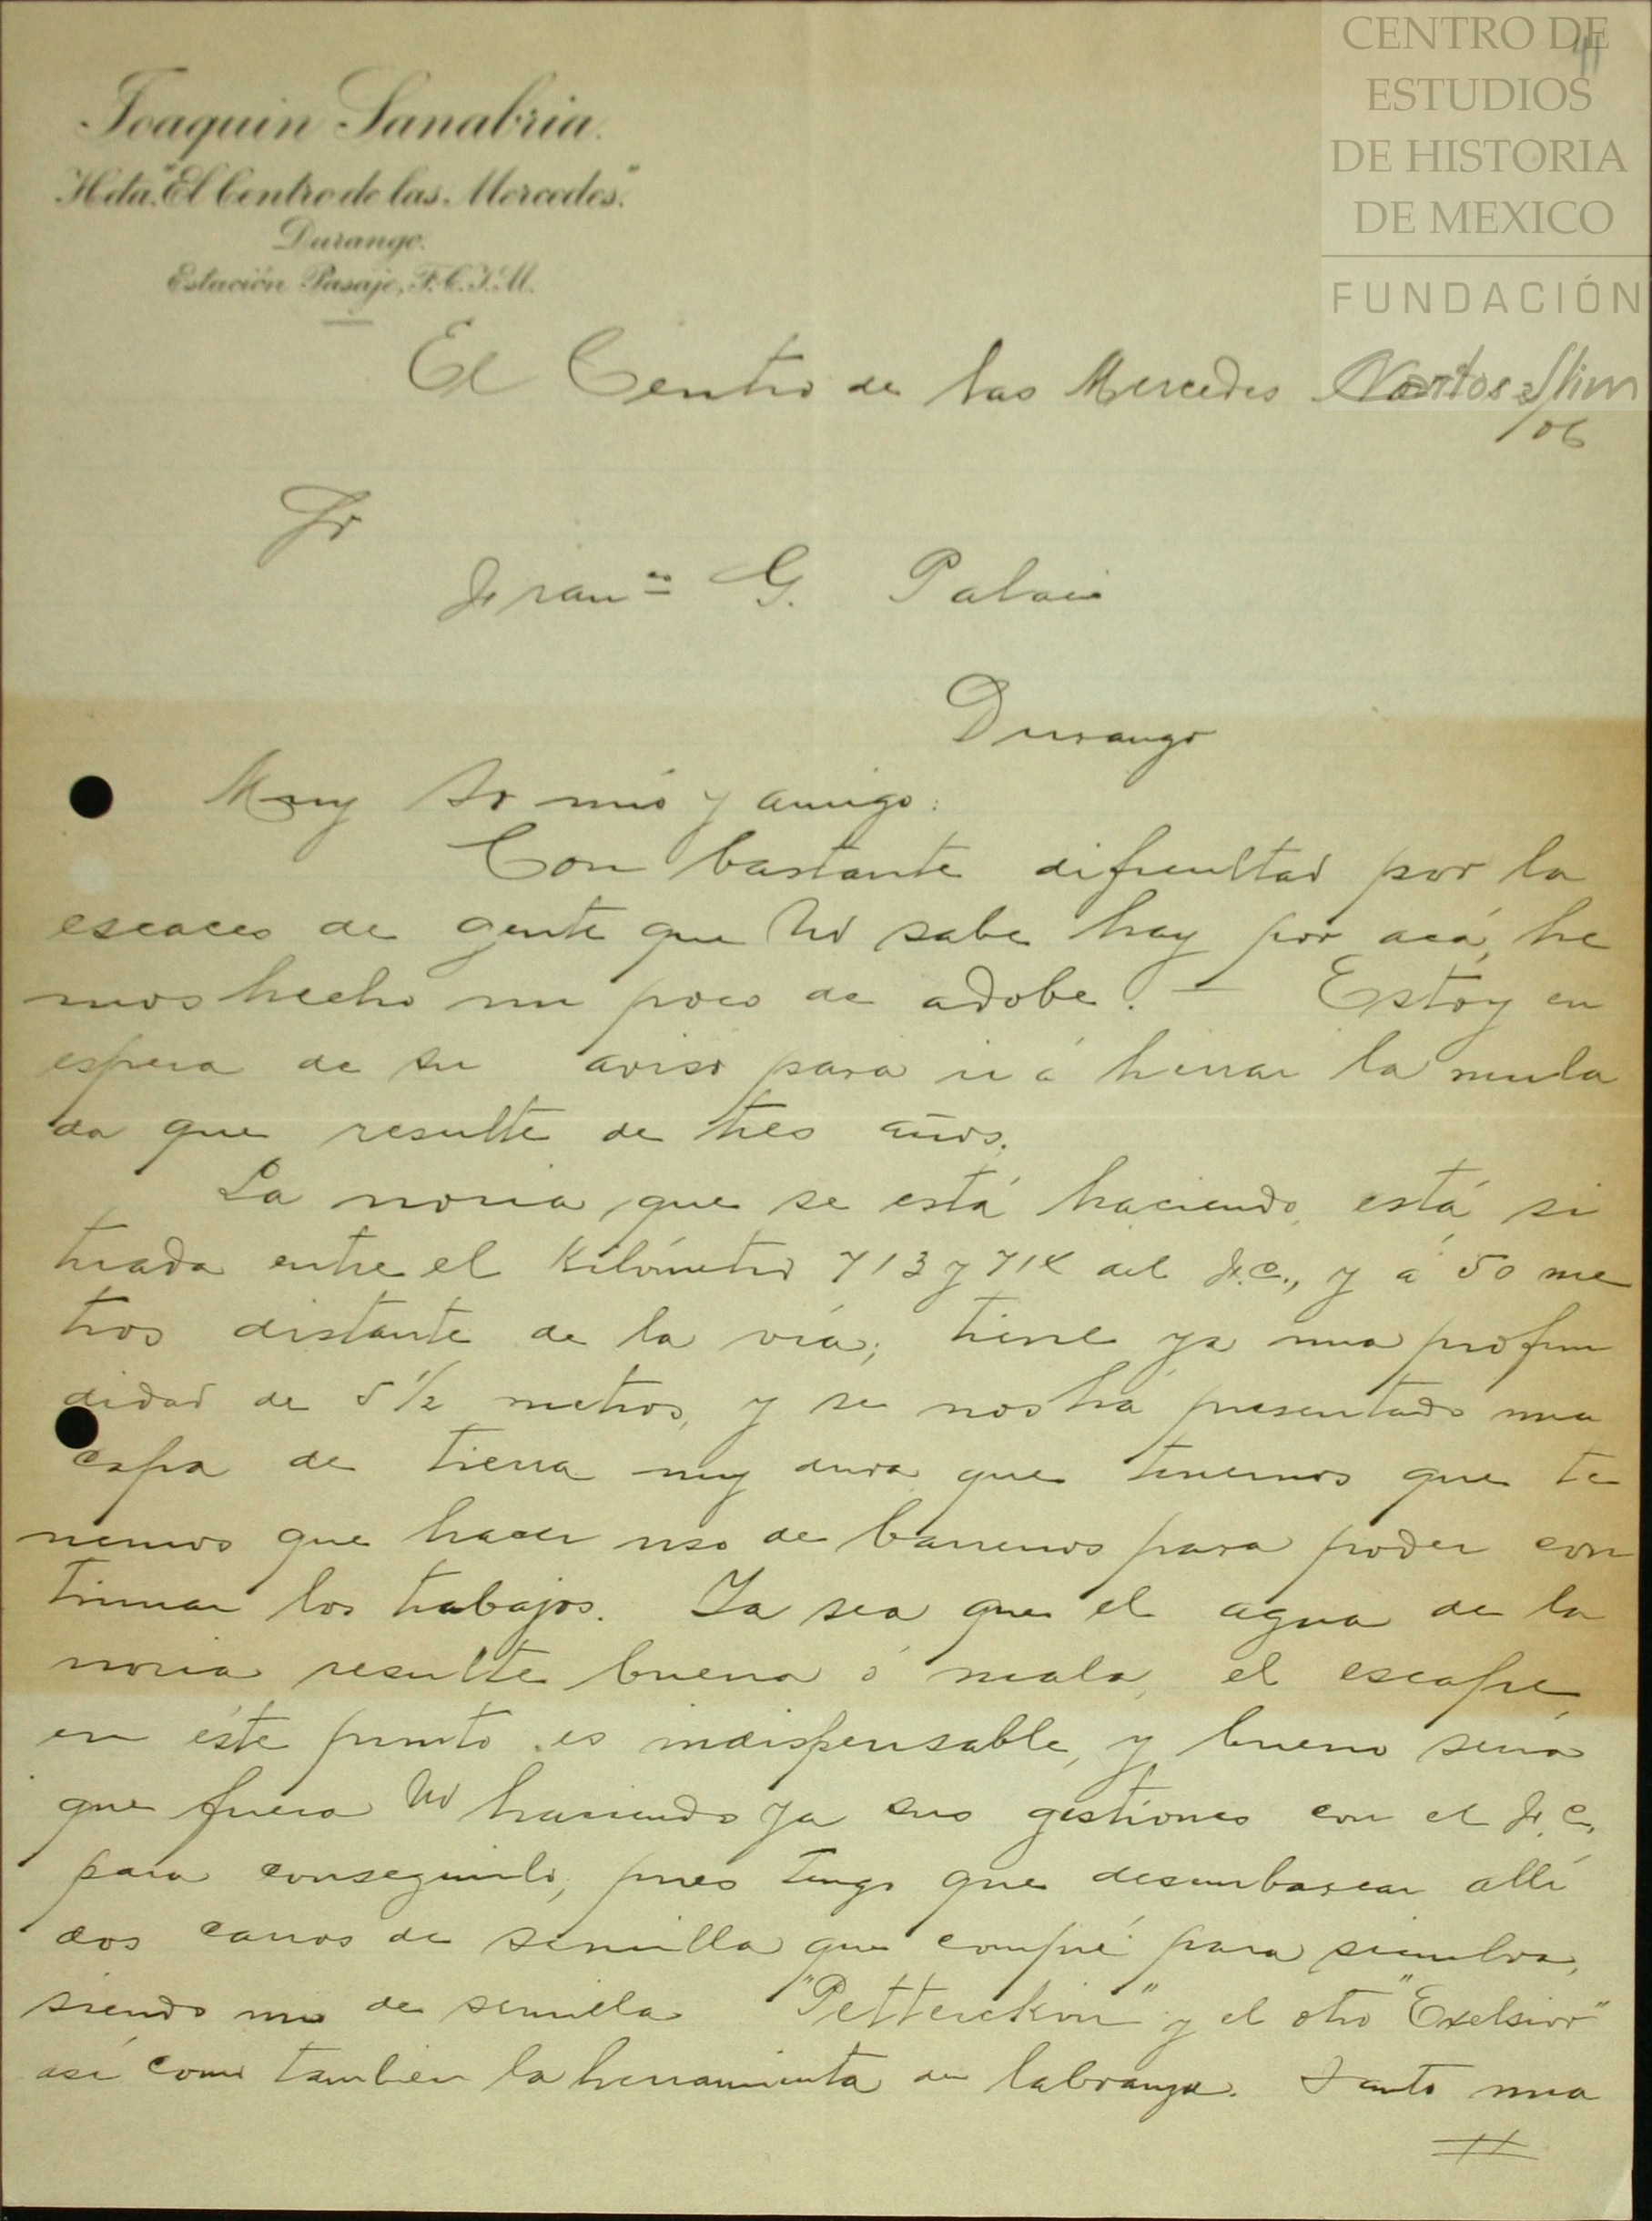 CENTRO DE
ESTUDIOS
DE HISTORIA
DE MEXICO
FUNDACIÓN
Joaquin Sanabria.
Hda. "El Centro de las Mercedes".
Durango.
Estación Pasaje, F.C.I.M.
El Centro de las Mercedes
/06
Sr
Franco G. Palacio
Durango
Muy Sr mío y amigo:
Con bastante dificultad por la
escaces de gente que Ud sabe hay por acá, he
mos hecho un poco de adobe. — Estoy en
espera de su aviso para ir á herrar la mula
da que resulte de tres años.
La noria que se está haciendo, está si
tuada entre el Kilómetro 713 y 714 del F.C., y á 50 me
tros distante de la vía; tiene ya una profun
didad de 5 1/2 metros, y se nos há presentado una
capa de tierra muy dura que tenemos que te
nemos que hacer uso de barrenos para poder con
tinuar los trabajos. Ya sea que el agua de la
noria resulte buena ó mala, el escape
en éste punto es indispensable, y bueno sería
que fuera Ud haciendo ya sus gestiones con el F.C.
para conseguirlo, pues tengo que desembarcar allí
dos carros de semilla que compré para siembra,
siendo uno de semilla "Petterckin" y el otro "Exelsior"
así como tambien la herramienta de labranza. Tanto una